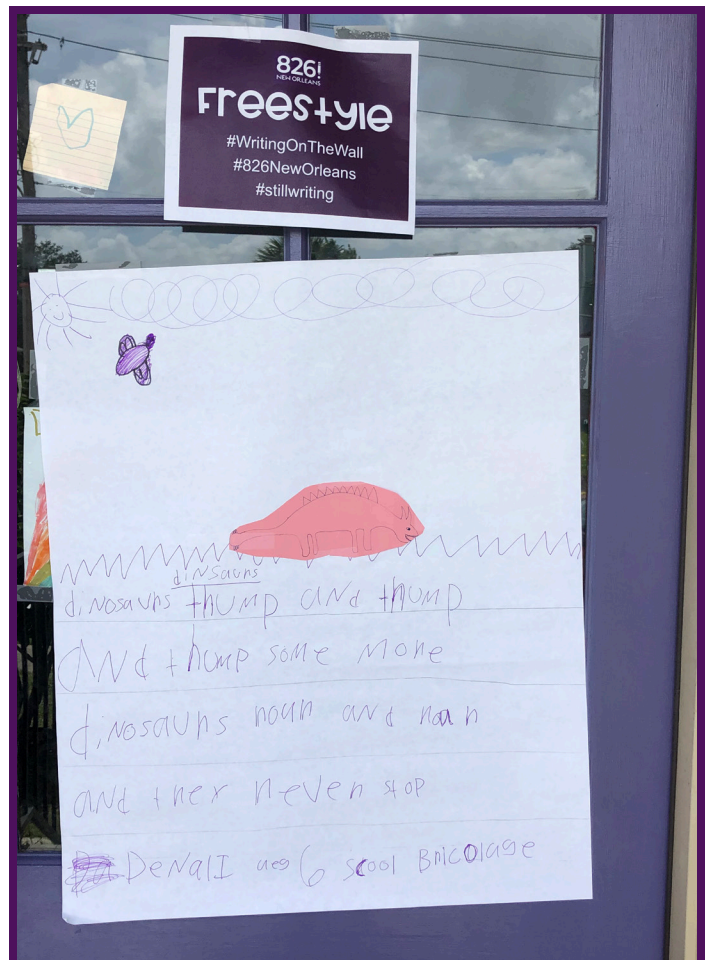 826!
NEW ORLEANS
Freestyle
#WritingOnTheWall
#826NewOrleans
#stillwriting
dinsaurs
dinosaurs thump and thump
And thump some more
dinosaurs roar and roar
and they never stop
DeNalI aeg 6 scool Bricolage